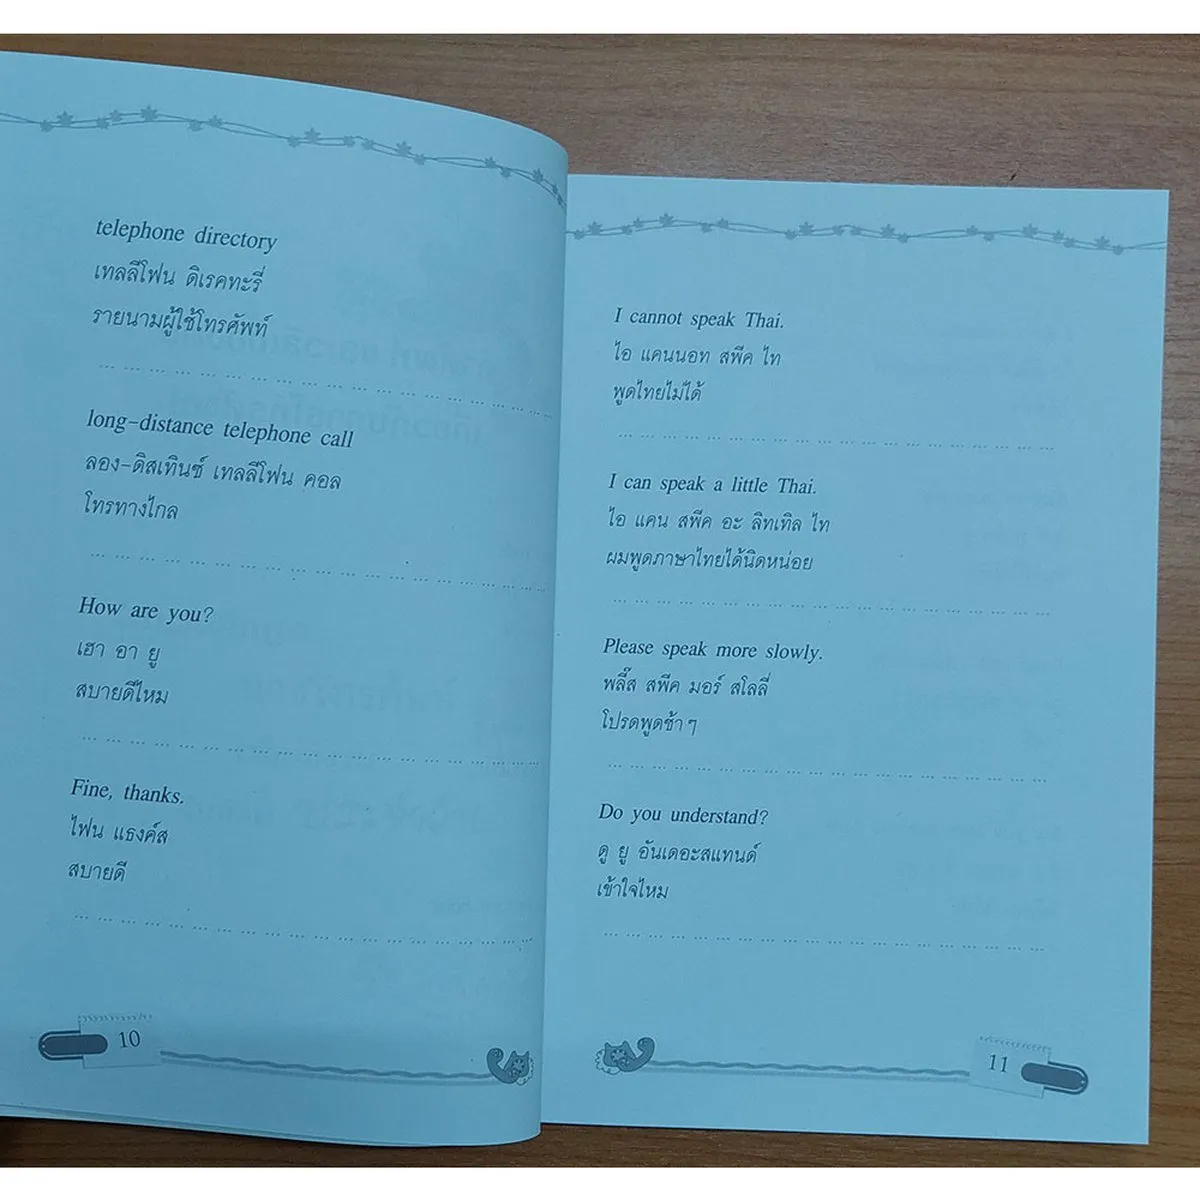 telephone directory
เทลลีโฟน ดิเรคทะรี่
รายนามผู้ใช้โทรศัพท์
long-distance telephone call
ลอง-ดิสเทินซ์ เทลลีโฟน คอล
โทรทางไกล
How are you?
เฮา อา ยู
สบายดีไหม
Fine, thanks.
ไฟน แธงค์ส
สบายดี
10
I cannot speak Thai.
ไอ แคนนอท สพีค ไท
พูดไทยไม่ได้
I can speak a little Thai.
ไอ แคน สพีค อะ ลิทเทิล ไท
ผมพูดภาษาไทยได้นิดหน่อย
Please speak more slowly.
พลี๊ส สพีค มอร์ สโลลี่
โปรดพูดช้าๆ
Do you understand?
ดู ยู อันเดอะสแทนด์
เข้าใจไหม
11